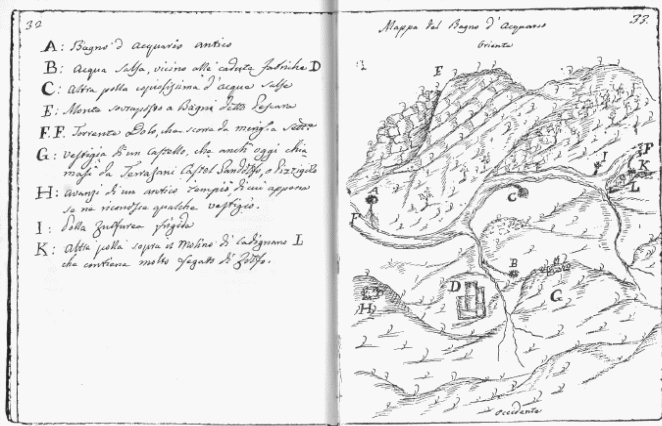 32
A: Bagno d'Acquario antico
B: Acqua salsa, vicino alle cadute fabriche D
C: Altra polla copiosissima d'acqua salsa
E: Monte sovraposto a Bagni detto
F.F. Torrente Dolo, che scorre da
G: Vestigia di un Castello, che anch'oggi chia
masi da Terrazani Castel Pandolfo, o Pizzigolo
H: Avanzi di un antico Tempio di cui appena
se ne riconosce qualche vestigio.
I: Polla Zulfurea frigida
K: Altra polla sopra il Molino di Cadignano L
che contiene molto fegato di Zolfo.
33.
Mappa del Bagno d'Acquario
Oriente
E
I
F
K
L
A
C
F
B
D
G
H
Occidente